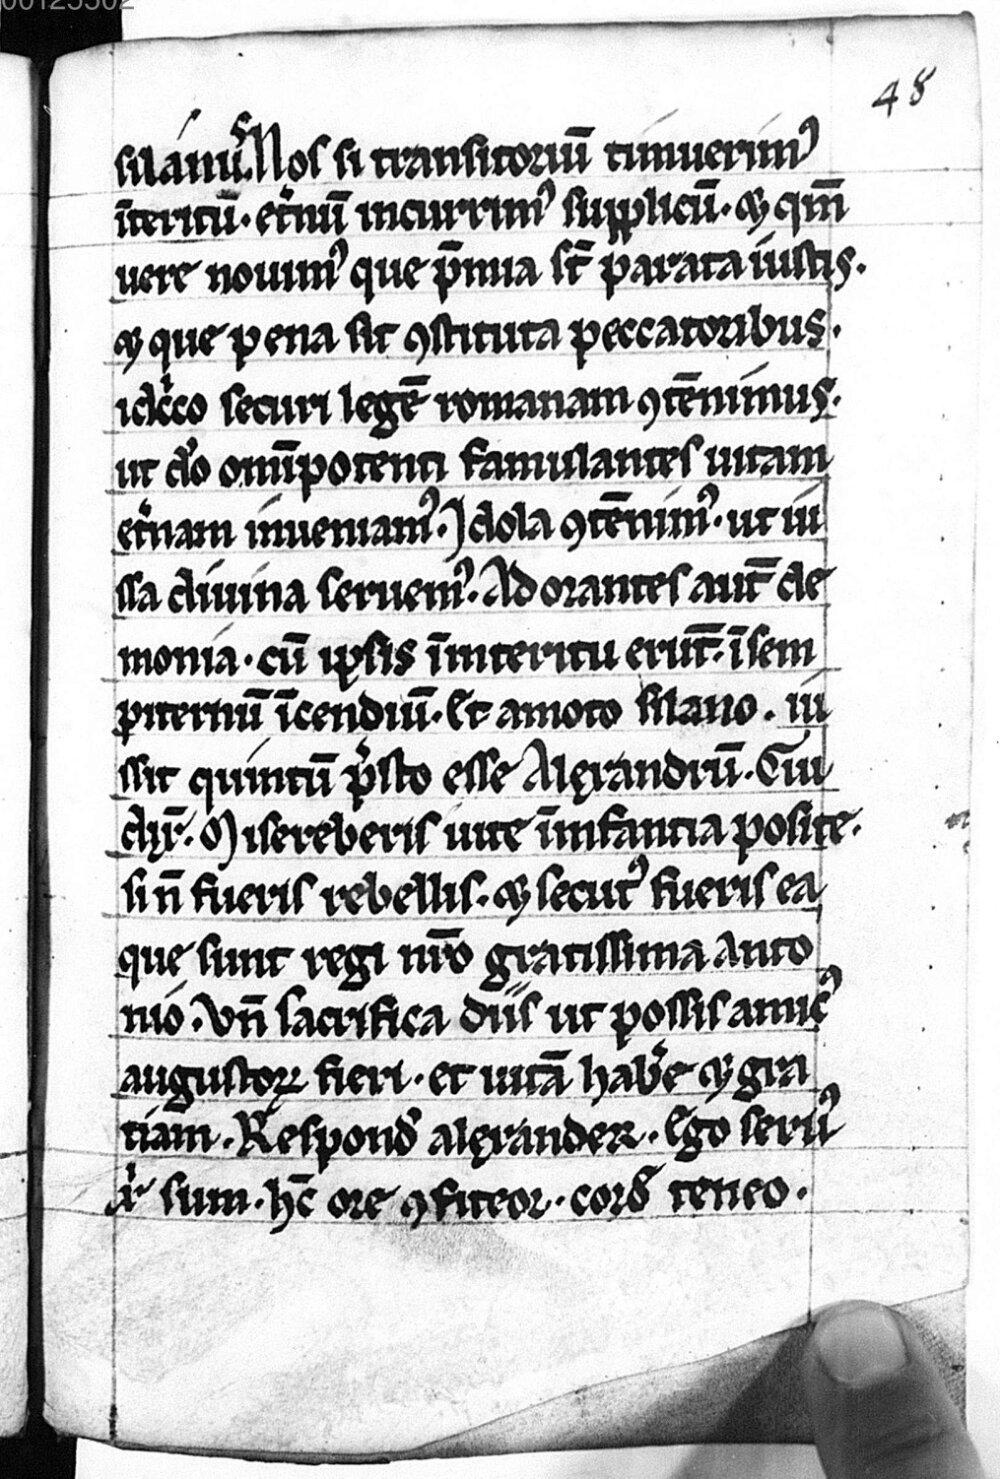 00125502
48
silanus. Nos si transitoriū timuerim᾽
īteritū. et̄nuū incurrim᾽ suppliciū. ⁊ qm̄
vere novim᾽ que p̄mia st̄ parata iustis.
⁊ que pena sit ꝯstituta peccatoribus.
idcͥco securi legē romanam ꝯtēnimus.
ut do᾽ omīpotenti famulantes vitam
et̄nam inveniam᾽. Idola ꝯtēnim᾽. ut iu
ssa divina servem᾽. Adorantes aut̄ de
monia. cū ipsis īinteritu erūt. īsem
piternū īcendiū. Et amoto silano. iu
ssit quintū p̄sto esse Alexandrū. Cui
dix̄. Misereberis vite īinfantia posite.
si n̄ fueris rebellis. ⁊ secut᾽ fueris ea
que sunt regi nr̄o gratissima anto
nio. Vn̄ sacrifica diis ut possis amic᾽
augustoꝝ fieri. et vitā hab̄e ⁊ gra
tiam. Respond᾽ alexander. Ego serv᾽
xͥ sum. hc̄ ore ꝯfiteor. cord᾽ teneo.